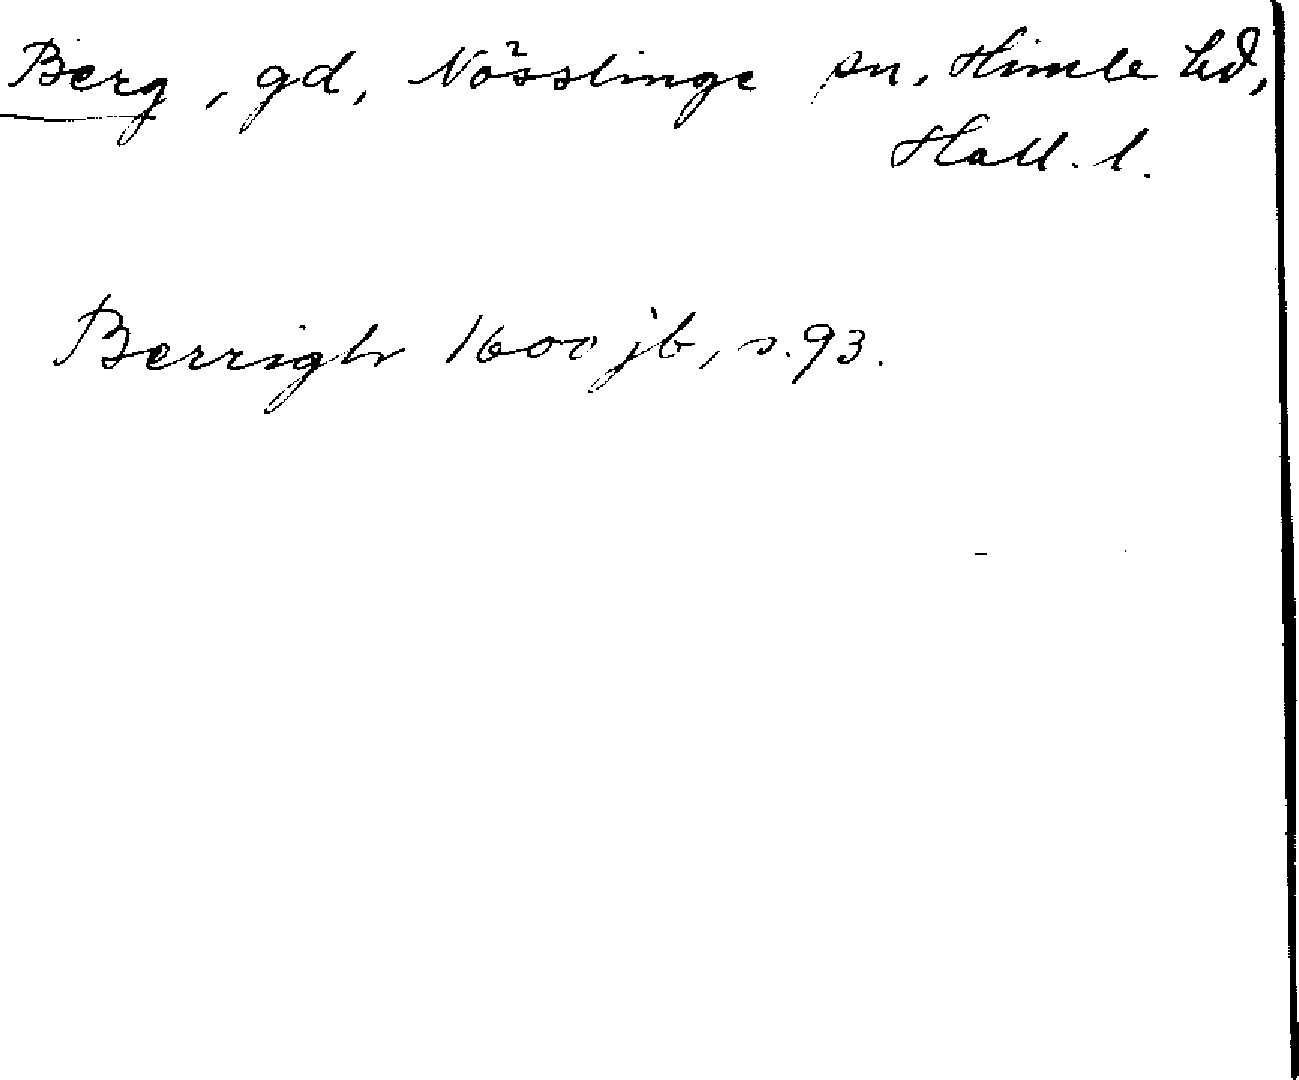 Berg, gd, Nösslinge sn, Himle hd,
Hall. l.
Berrigh 1600 jb, s. 93.